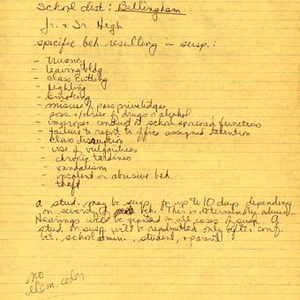 School dist: Bellingham
Jr. & Sr. High
specific beh. resulting in susp.:
- truancy
- leaving bldg
- class cutting
- fighting
- smoking
- misuse of pass priviledges
- poss. &/or use of drugs or alcohol
- improper conduct at school sponsored functions
- failure to report to office assigned detention
- class disruption
- use of vulgarities
- chronic tardiness
- vandalism
- insolent or abusive beh.
- theft
a stud. may be susp. for up to 10 days depending
on severity of beh. This is determined by admin.
Hearings will be granted in all cases of susp. A
stud. on susp. will be readmitted only after conf.
bet. school admin., student, & parent.
no
elem. code